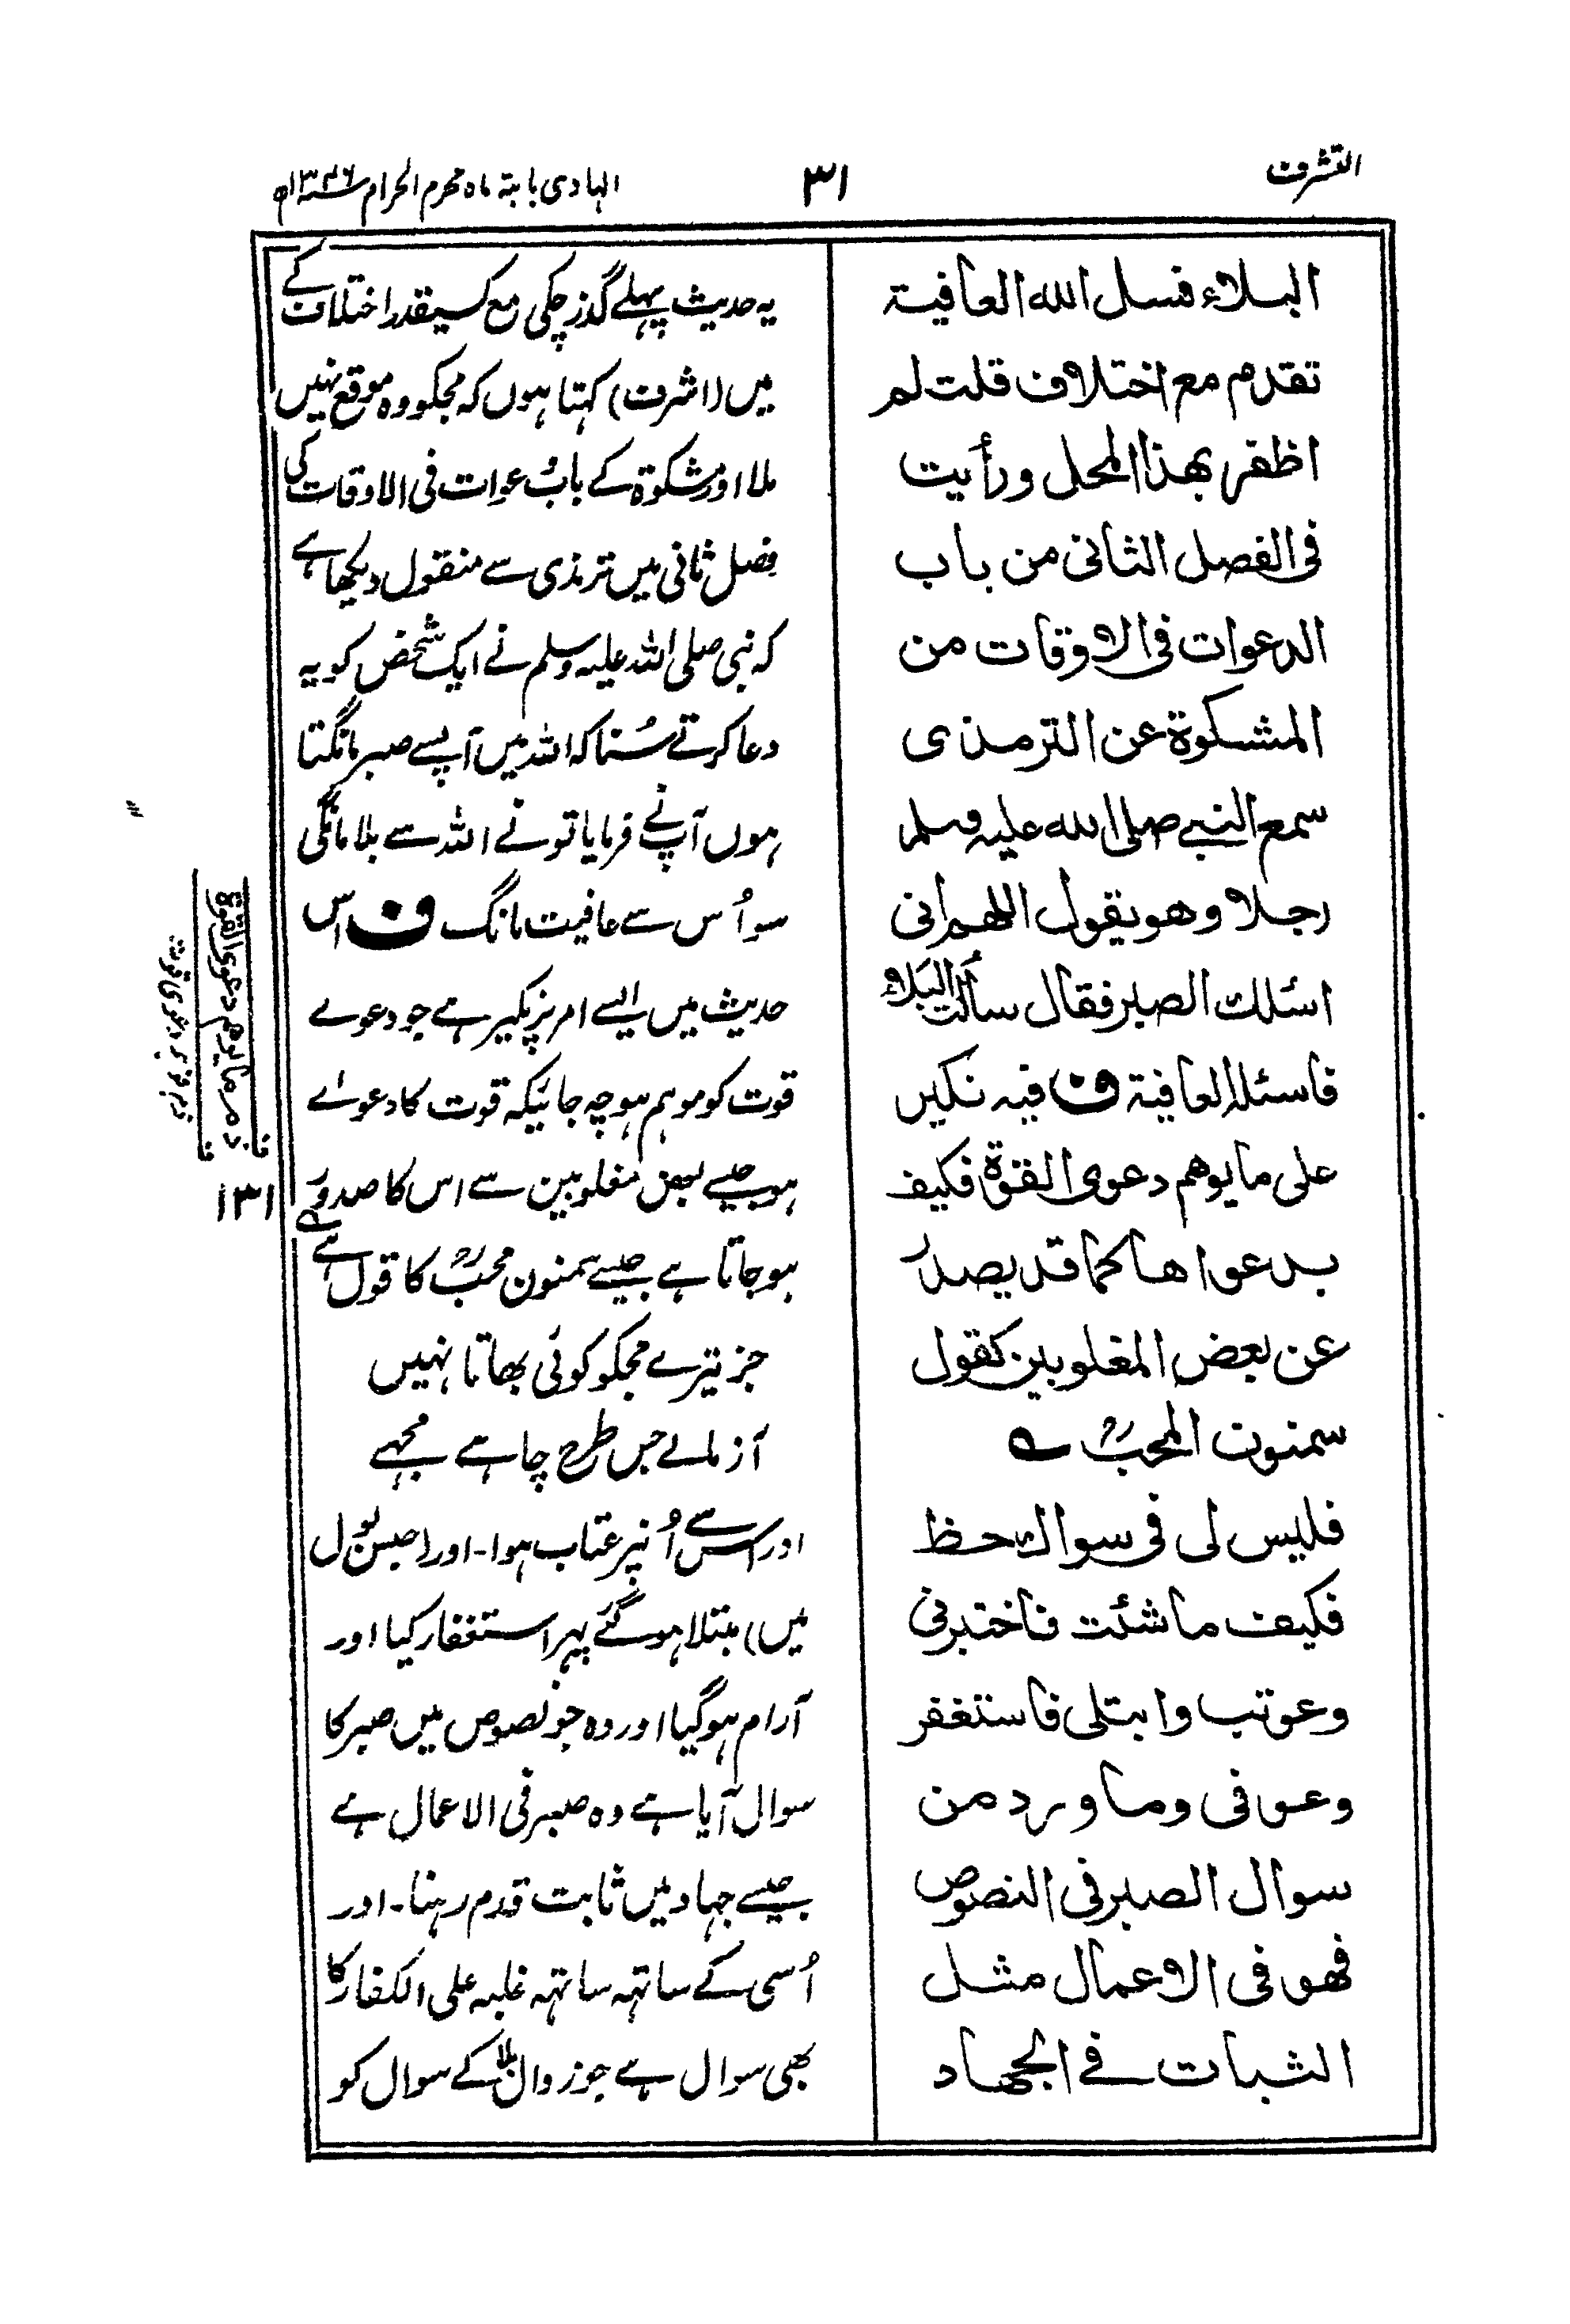 التشرف
۳۱
الہادی بابتہ ماہ محرم الحرام ۱۳۴۶ھ
البلاء فسل الله العافية
تقدم مع اختلاف قلت لم
اظفر بهذا المحل ورأيت
فى الفصل الثانى من باب
الدعوات فى الاوقات من
المشكوة عن الترمذى
سمع النبى صلى الله عليه وسلم
رجلا وهو يقول اللهم انى
اسئلك الصبر فقال سألت البلاء
فاسئله العافية ف فيه نكير
على ما يوهم دعوى القوة فكيف
بدعواها كما قد يصدر
عن بعض المغلوبين كقول
سمنون المحبؒ ؎
فليس لى فى سواك حظ
فكيف ما شئت فاختبرنى
وعوتب وابتلى فاستغفر
وعوفى وما ورد من
سوال الصبر فى النصوص
فهو فى الاعمال مثل
الثبات فے الجهاد
یہ حدیث پہلے گذر چکی مع کسیقدر اختلاف کے
میں (اشرف) کہتا ہوں کہ مجکو وہ موقع نہیں
ملا اور مشکوۃ کے باب دعوات فی الاوقات کی
فصل ثانی میں ترمذی سے منقول دیکھا ہے
کہ نبی صلی اللہ علیہ وسلم نے ایک شخص کو یہ
دعا کرتے سُنا کہ اللہ میں آپسے صبر مانگتا
ہوں آپ نے فرمایا تو نے اللہ سے بلا مانگی
سو اُس سے عافیت مانگ ف اس
حدیث میں ایسے امر پر نکیر ہے جو دعوے
قوت کو موہم ہو چہ جائیکہ قوت کا دعواے
ہو جیسے بعض مغلوبین سے اس کا صدور
ہو جاتا ہے جیسے سمنون محبؒ کا قول ہے ؎
جز تیرے مجکو کوئی بھاتا نہیں
آزمالے جس طرح چاہے مجھے
اور اس سے اُنپر عتاب ہوا۔ اور (حبس بول
میں) مبتلا ہوگئے پہر استغفار کیا اور
آرام ہوگیا اور وہ جو نصوص میں صبر کا
سوال آیا ہے وہ صبر فی الاعمال ہے
جیسے جہاد میں ثابت قدم رہنا۔ اور
اُسی کے ساتہہ ساتہہ غلبہ علی الکفار کا
بھی سوال ہے جو زوال بلا کے سوال کو
ذم ما يوهم دعوى القوة
۱۳۱